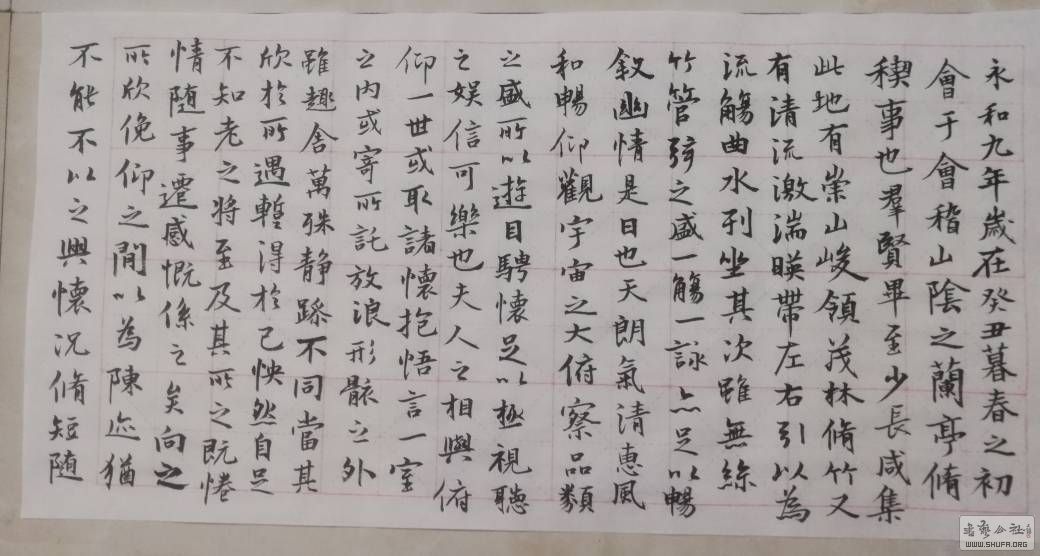 永和九年歲在癸丑暮春之初
會于會稽山陰之蘭亭脩
稧事也羣賢畢至少長咸集
此地有崇山峻領茂林脩竹又
有清流激湍暎帶左右引以為
流觴曲水列坐其次雖無絲
竹管弦之盛一觴一詠亦足以暢
敘幽情是日也天朗氣清惠風
和暢仰觀宇宙之大俯察品類
之盛所以遊目騁懷足以極視聽
之娛信可樂也夫人之相與俯
仰一世或取諸懷抱悟言一室
之內或寄所託放浪形骸之外
雖趣舍萬殊静躁不同當其
欣於所遇暫得於己怏然自足
不知老之將至及其所之既惓
情隨事遷感慨係之矣向之
所欣俛仰之間以為陳迹猶
不能不以之興懷況脩短隨
書藝公社
WWW.SHUFA.ORG